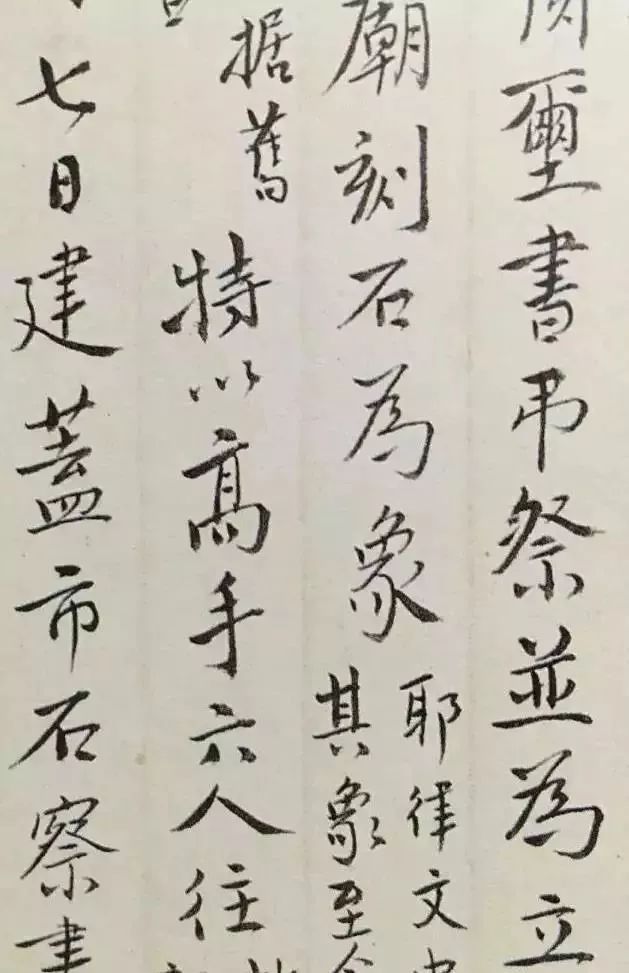 璽書弔祭並為立
廟刻石為象
耶律文
其象至今
据舊
特以高手六人往
七日建蓋市石察書